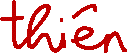 thiên